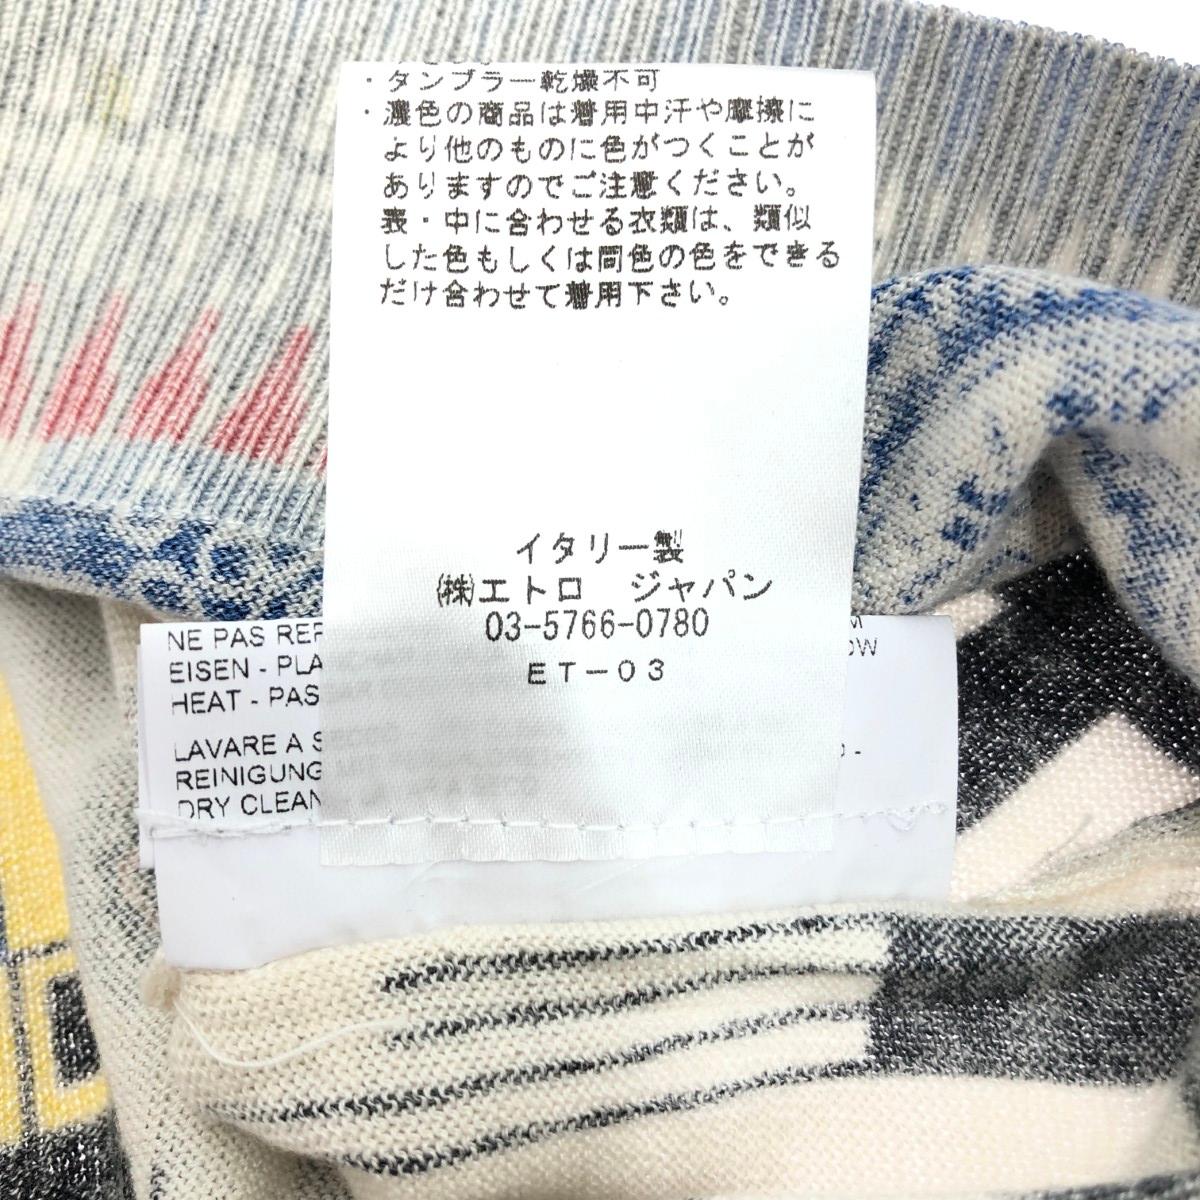 ・タンブラー乾燥不可
・濃色の商品は着用中汗や摩擦に
より他のものに色がつくことが
ありますのでご注意ください。
表・中に合わせる衣類は、類似
した色もしくは同色の色をできる
だけ合わせて着用下さい。
イタリー製
㈱エトロ ジャパン
03-5766-0780
ET-03
NE PAS REP
EISEN - PLA
HEAT - PAS
LAVARE A S
REINIGUNG
DRY CLEAN
OW